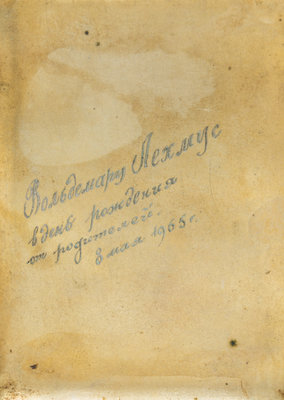 Вольдемару Лехмус
в день рождения
от родителей.
3 мая 1965 г.